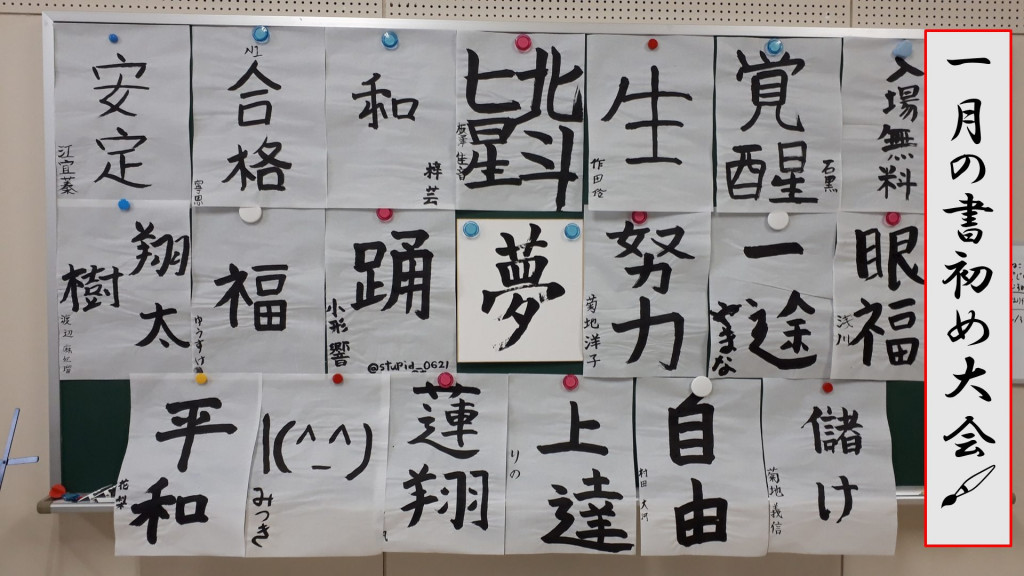 一月の書初め大会
安定
江宜蓁
N1
合格
和
梓芸
北斗
七星
生
作田俗
覚醒
石黒
入場無料
翔太
樹
渡辺
福
ゆうすけ
踊
小形 響
@stupid_0621
夢
努力
菊地洋子
一途
やまな
眼福
浅川
平和
花梨
|(^_^)
みつき
蓮翔
上達
りの
自由
村田
儲け
菊地義信